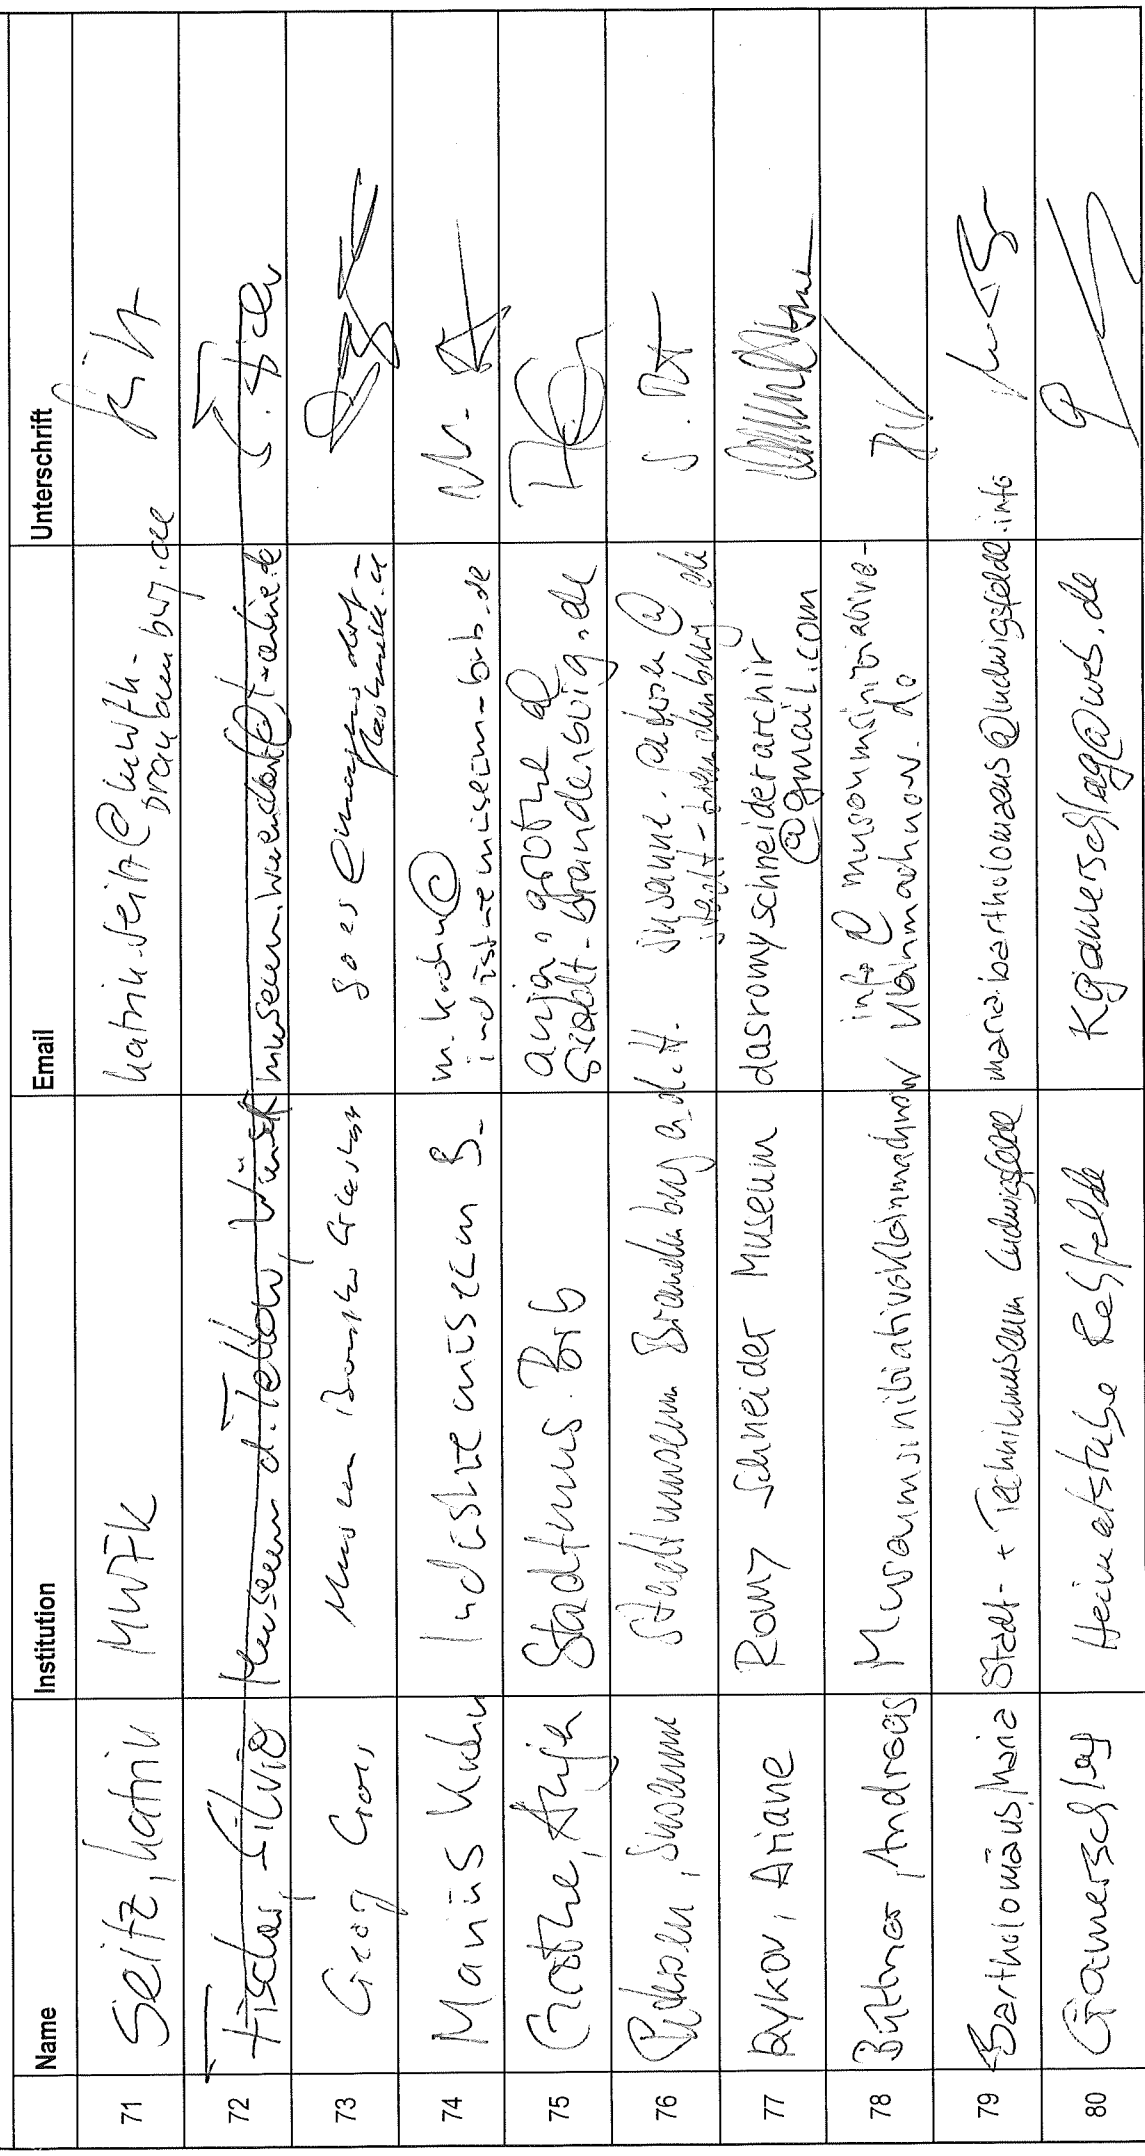 Name Institution Email Unterschrift
71 Seitz, Katrin MWFK katrin.seitz@mwfk-
brandenburg.de
72 Fischer, Silvio Museum d. Teltow, Wünsd museum.wuensdorf@t-online.de S. Fischer
73 Georg Goes Museum
74 Marius Krohn Industriemuseum B. m.krohn@
industriemuseum-brb.de
75 Grothe, Anja Stadtmus. Brb anja.grothe@
stadt-brandenburg.de
76 Pedersen, Susanne Stadtmuseum Brandenburg a.d.H.
stadt-brandenburg.de
77 Rykov, Ariane Romy Schneider Museum dasromyschneiderarchiv
@gmail.com
78 Büttner, Andreas Museumsinitiative Kleinmachnow info@museumsinitiative-
kleinmachnow.de
79 Bartholomäus, Maria Stadt- + Technikmuseum Ludwigsfelde maria.bartholomaeus@ludwigsfelde.info
80 Gamerschlag Heimatstube Rehfelde Kgamerschlag@web.de